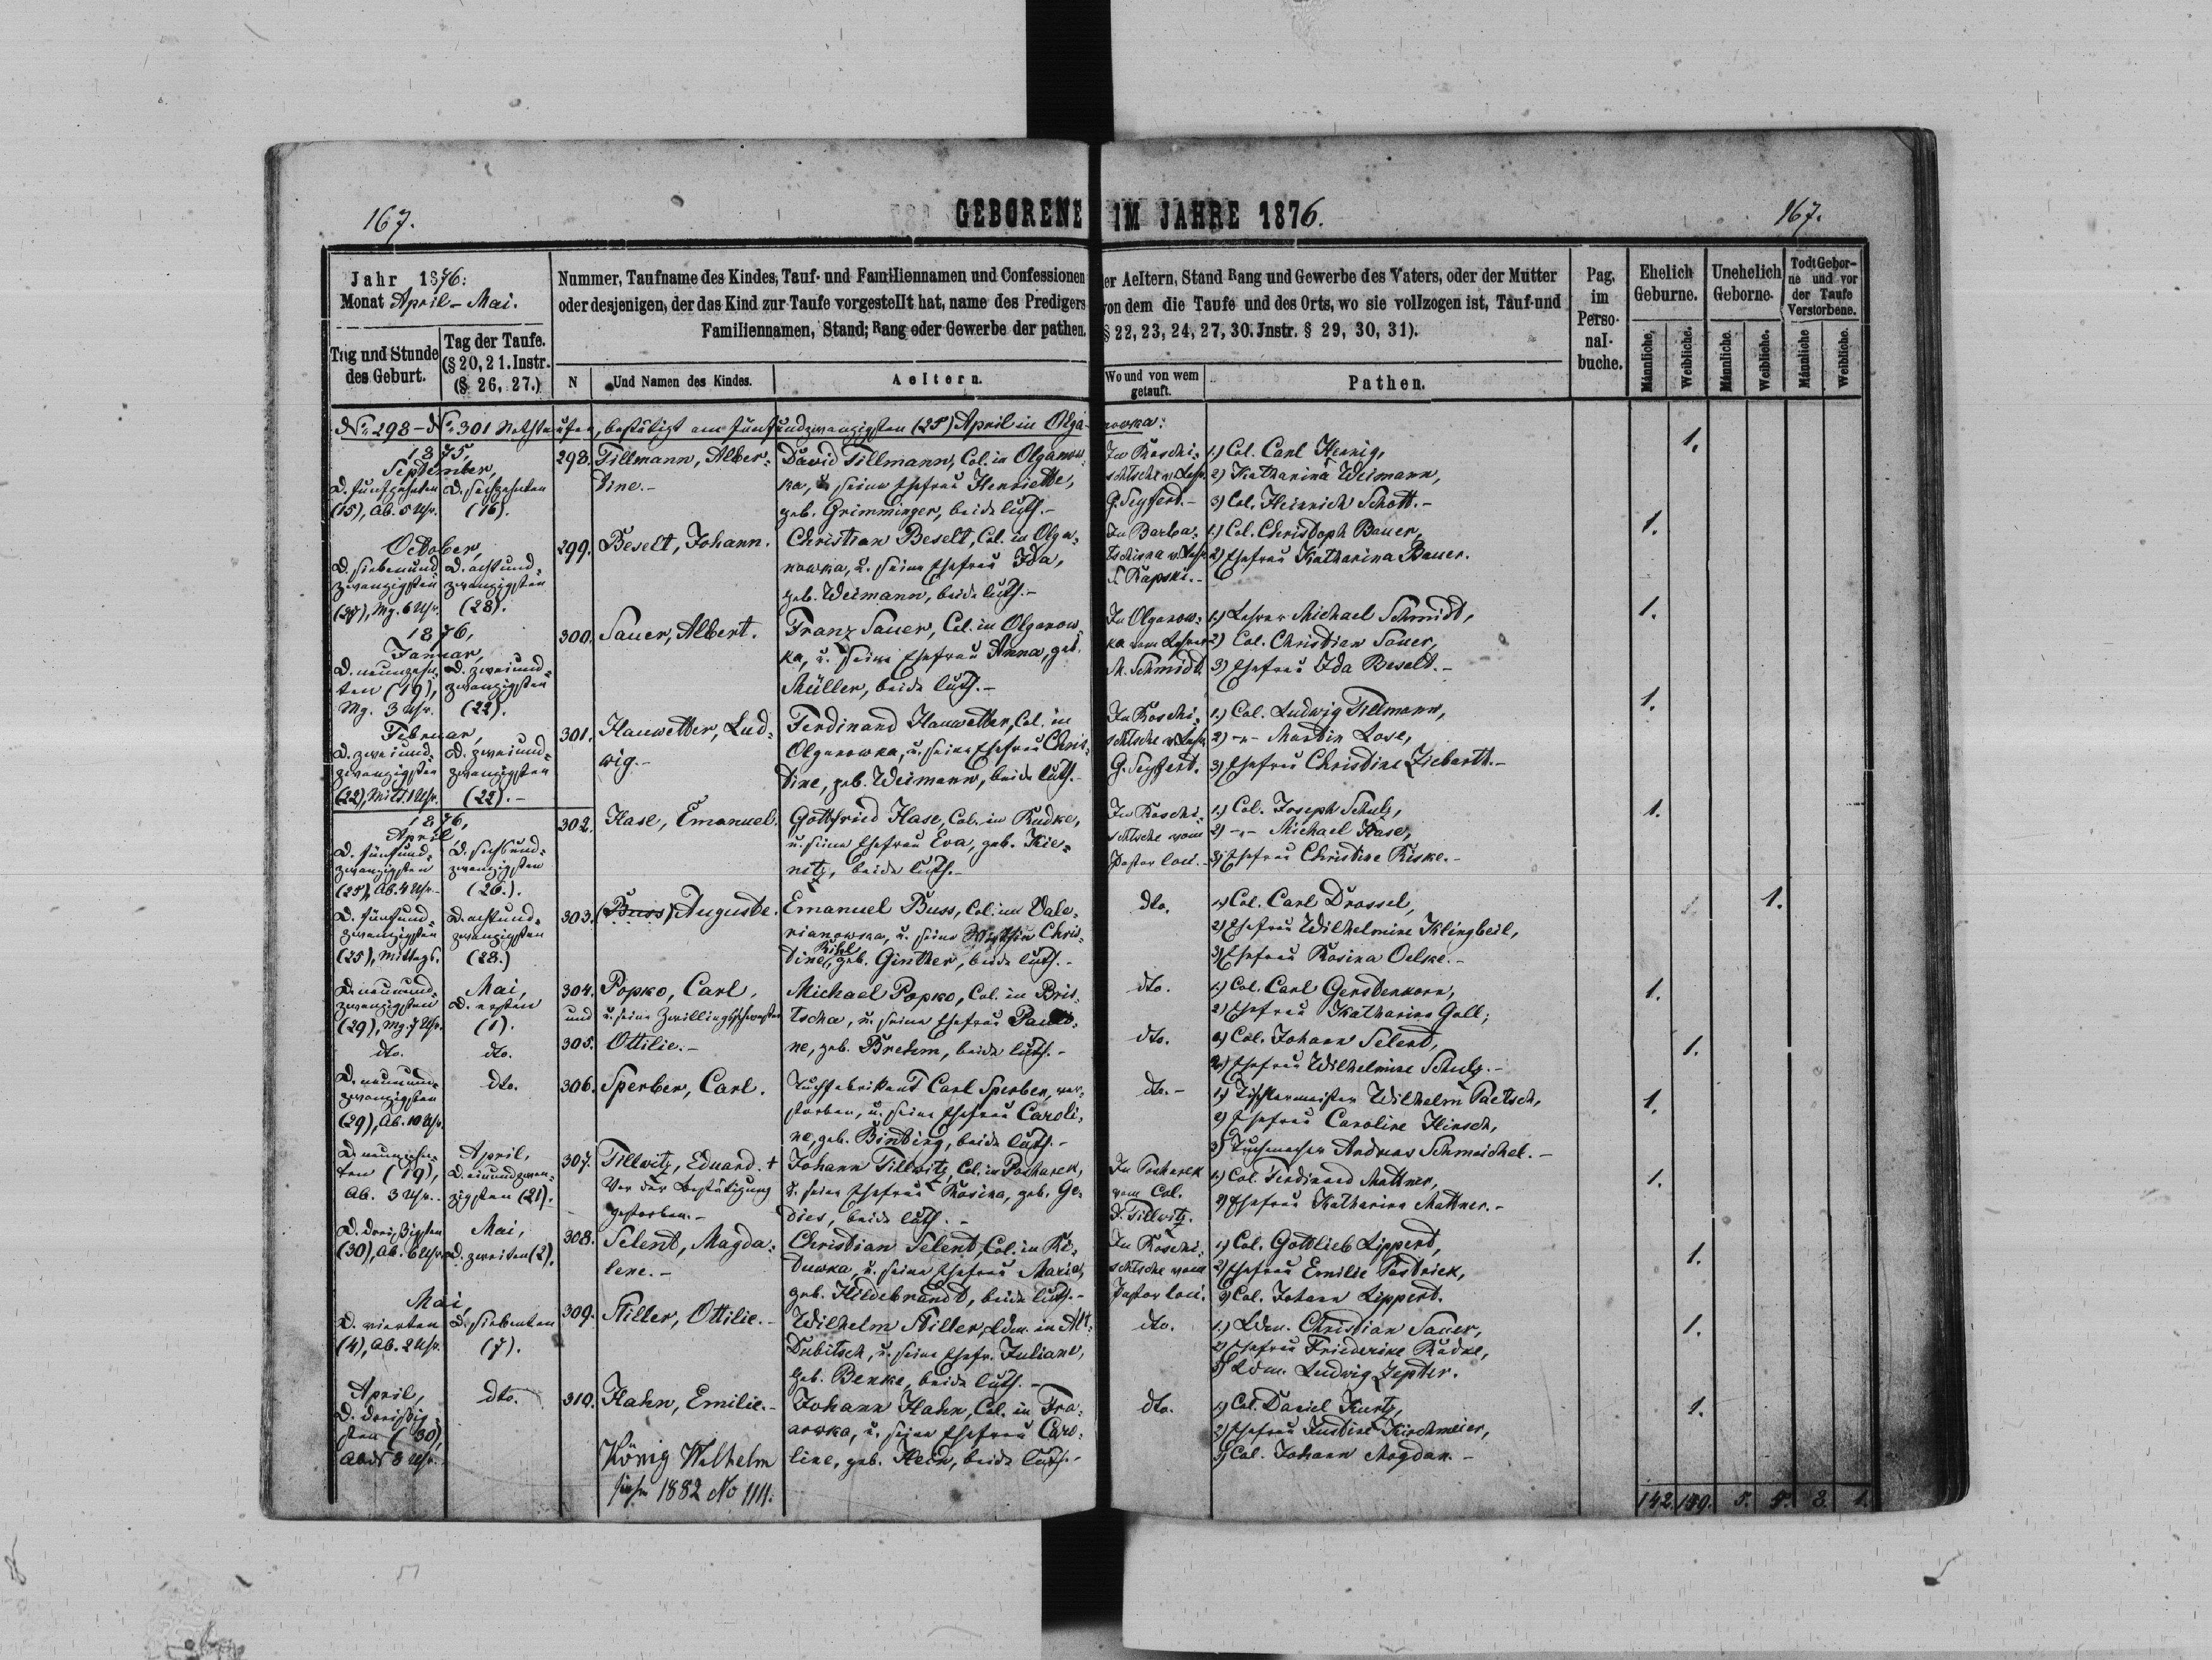 167.
GEBORENE IM JAHRE 1876.
167.
Jahr 1876:
Monat April - Mai.
Tag und Stunde
des Geburt.
Tag der Taufe.
(§ 20, 21. Instr.
(§ 26, 27.)
Nummer, Taufname des Kindes, Tauf- und Familiennamen und Confessionen der Aeltern, Stand Rang und Gewerbe des Vaters, oder der Mutter
oder desjenigen, der das Kind zur Taufe vorgestellt hat, name des Predigers von dem die Taufe und des Orts, wo sie vollzogen ist, Tauf-und
Familiennamen, Stand; Rang oder Gewerbe der pathen. § 22, 23, 24, 27, 30. Jnstr. § 29, 30, 31).
N
Und Namen des Kindes.
Aeltern.
Wo und von wem
getauft.
Pathen.
Pag.
im
Perso-
nal-
buche.
Ehelich
Geburne.
Unehelich
Geborne.
Todt Gebor-
ne und vor
der Taufe
Verstorbene.
Männliche.
Weibliche.
Männliche.
Weibliche.
Männliche
Weibliche.
No 298 - No 301 Nothtaufen, bestätigt am fünfundzwanzigsten (25) April in Olganowka:
1875,
September,
D. fünfzehnten
(15), Ab. 5 Uhr.
D. sechzehnten
(16).
298. Tillmann, Alber-
tine.-
David Tillmann, Col. in Olganow-
ka, u. seine Ehefrau Henriette,
geb. Grimminger, beide luth.-
In Roschi-
schtsche v. Lehr.
G. Seyfert.-
1.) Col. Carl Hennig,
2) Katharina Weimann,
3) Col. Heinrich Schott.-
1.
October,
D. siebenund-
zwanzigsten
(27), Mg. 6 Uhr.
D. achtund-
zwanzigsten
(28).
299. Beselt, Johann.
Christian Beselt, Col. in Olga-
nowka, u. seine Ehefrau Ida,
geb. Weimann, beide luth.-
In Barba-
tschisna v. Lehr.
Kapski.-
1.) Col. Christoph Bauer,
2) Ehefrau Katharina Bauer.
1.
1876,
Januar,
D. neunzehn-
ten (19),
Mg. 3 Uhr.
D. zweiund-
zwanzigsten
(22).
300. Sauer, Albert.
Franz Sauer, Col. in Olganow-
ka, u. seine Ehefrau Anna, geb.
Müller, beide luth.-
In Olganow-
ka vom Lehrer
M. Schmidt.
1.) Lehrer Michael Schmidt,
2) Col. Christian Sauer,
3) Ehefrau Ida Beselt.-
1.
Februar,
D. zweiund-
zwanzigsten
(22), Mitt. 1 Uhr.
D. zweiund-
zwanzigsten
(22).-
301. Hauwetter, Lud-
wig.-
Ferdinand Hauwetter, Col. in
Olganowka, u. seine Ehefrau Chris-
tine, geb. Weimann, beide luth.-
In Roschi-
schtsche v. Lehr.
G. Seyfert.
1.) Col. Ludwig Tillmann,
2) -"- Martin Lose,
3) Ehefrau Christine Zieberth.-
1.
1876,
April
D. fünfund-
zwanzigsten
(25), Ab. 4 Uhr.-
D. sechsund-
zwanzigsten
(26.).
302. Hase, Emanuel.
Gottfried Hase, Col. in Rudke,
u. seine Ehefrau Eva, geb. Kie-
nitz, beide luth.-
In Roschi-
schtsche vom
Pastor loci.-
1.) Col. Joseph Schulz,
2) -"- Michael Hase,
3) Ehefrau Christine Riske.-
1.
D. fünfund-
zwanzigsten
(25), Mittags.
D. achtund-
zwanzigsten
(28.)
303. (Buss) Auguste.
Emanuel Buss, Col. in Vale-
rianowka, u. seine Chris-
tine, geb. Ginther, beide luth.-
dto.
1.) Col. Carl Drossel,
2) Ehefrau Wilhelmine Klingbeil,
3) Ehefrau Rosina Oelke.-
1.
D. neunund-
zwanzigsten
(29), Mg. 7 Uhr.
Mai,
D. ersten
(1).
304. Popko, Carl,
und u. seine Zwillingsschwester
Michael Popko, Col. in Bris-
tscha, u. seine Ehefrau Pauli-
ne, geb. Brehm, beide luth.-
dto.
1.) Col. Carl Gerstenkorn,
2) Ehefrau Katharina Gall;
1.
dto.
dto.
305. Ottilie.-
dto.
1) Col. Johann Selent,
2) Ehefrau Wilhelmine Schulz.-
1.
D. neunund-
zwanzigsten
(29), Ab. 10 Uhr.
dto.
306. Sperber, Carl.
Tuchfabrikant Carl Sperber, ver-
storben, u. seine Ehefrau Caroli-
ne, geb. Binting, beide luth.-
dto.-
1.) Tischlermeister Wilhelm Paetsch,
2) Ehefrau Caroline Hirsch,
3) Tuchmacher Andreas Schmeichel.-
1.
D. neunzehn-
ten (19),
Ab. 3 Uhr.-
April,
D. einundzwan-
zigsten (21).-
307. Tillwitz, Eduard. +
Vor der Bestätigung
gestorben.-
Johann Tillwitz, Col. in Posharek,
u. seine Ehefrau Rosina, geb. Ge-
dies, beide luth.-
In Posharek
vom Col.
Tillwitz.
1.) Col. Ferdinand Mattner,
2) Ehefrau Katharina Mattner.-
1.
D. dreißigsten
(30), Ab. 6 Uhr.
Mai,
D. zweiten (2).
308. Selent, Magda-
lene.-
Christian Selent, Col. in Ki-
duwka, u. seine Ehefrau Maria,
geb. Hildebrandt, beide luth.-
In Roschi-
schtsche vom
Pastor loci.
1.) Col. Gottlieb Lippert,
2) Ehefrau Emilie Pastriek,
3) Col. Johann Lippert.
1.
Mai,
D. vierten
(4), Ab. 2 Uhr.
D. siebenten
(7).
309. Stiller, Ottilie.-
Wilhelm Stiller, Ldm. in Alt-
Dubitsch, u. seine Ehefr. Juliane,
geb. Benke, beide luth.-
dto.
1.) Ldm. Christian Sauer,
2) Ehefrau Friederike Radke,
3) Ldm. Ludwig Zepter.
1.
April,
D. dreißig-
sten (30),
Abds 8 Uhr.
dto.
310. Hahn, Emilie.-
Johann Hahn, Col. in
nowka, u. seine Ehefrau Caro-
line, geb. Hein, beide luth.-
dto.
1.) Col. Daniel Kurtz,
2) Ehefrau Justine Kirchmeier,
3) Col. Johann Mogdan.-
1.
König Wilhelm
siehe 1882 No 1111.
142. 159. 5. 5. 3. 1.